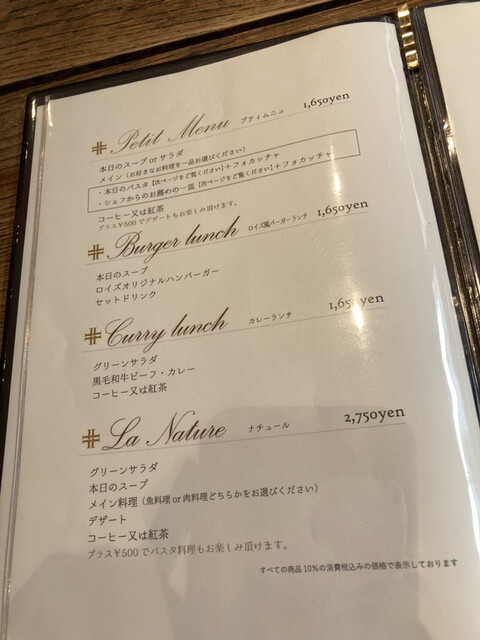 Petit Menu プティムニュ 1,650yen
本日のスープ or サラダ
メイン（お好きなお料理を一品お選びください）
・本日のパスタ【次ページをご覧ください】+フォカッチャ
・シェフからのお薦めの一皿【次ページをご覧ください】+フォカッチャ
コーヒー又は紅茶
プラス¥500でデザートもお楽しみ頂けます。
Burger lunch ロイズ風バーガーランチ 1,650yen
本日のスープ
ロイズオリジナルハンバーガー
セットドリンク
Curry lunch カレーランチ 1,650yen
グリーンサラダ
黒毛和牛ビーフ・カレー
コーヒー又は紅茶
La Nature ナチュール 2,750yen
グリーンサラダ
本日のスープ
メイン料理（魚料理 or 肉料理どちらかをお選びください）
デザート
コーヒー又は紅茶
プラス¥500でパスタ料理もお楽しみ頂けます。
すべての商品10%の消費税込みの価格で表示しております